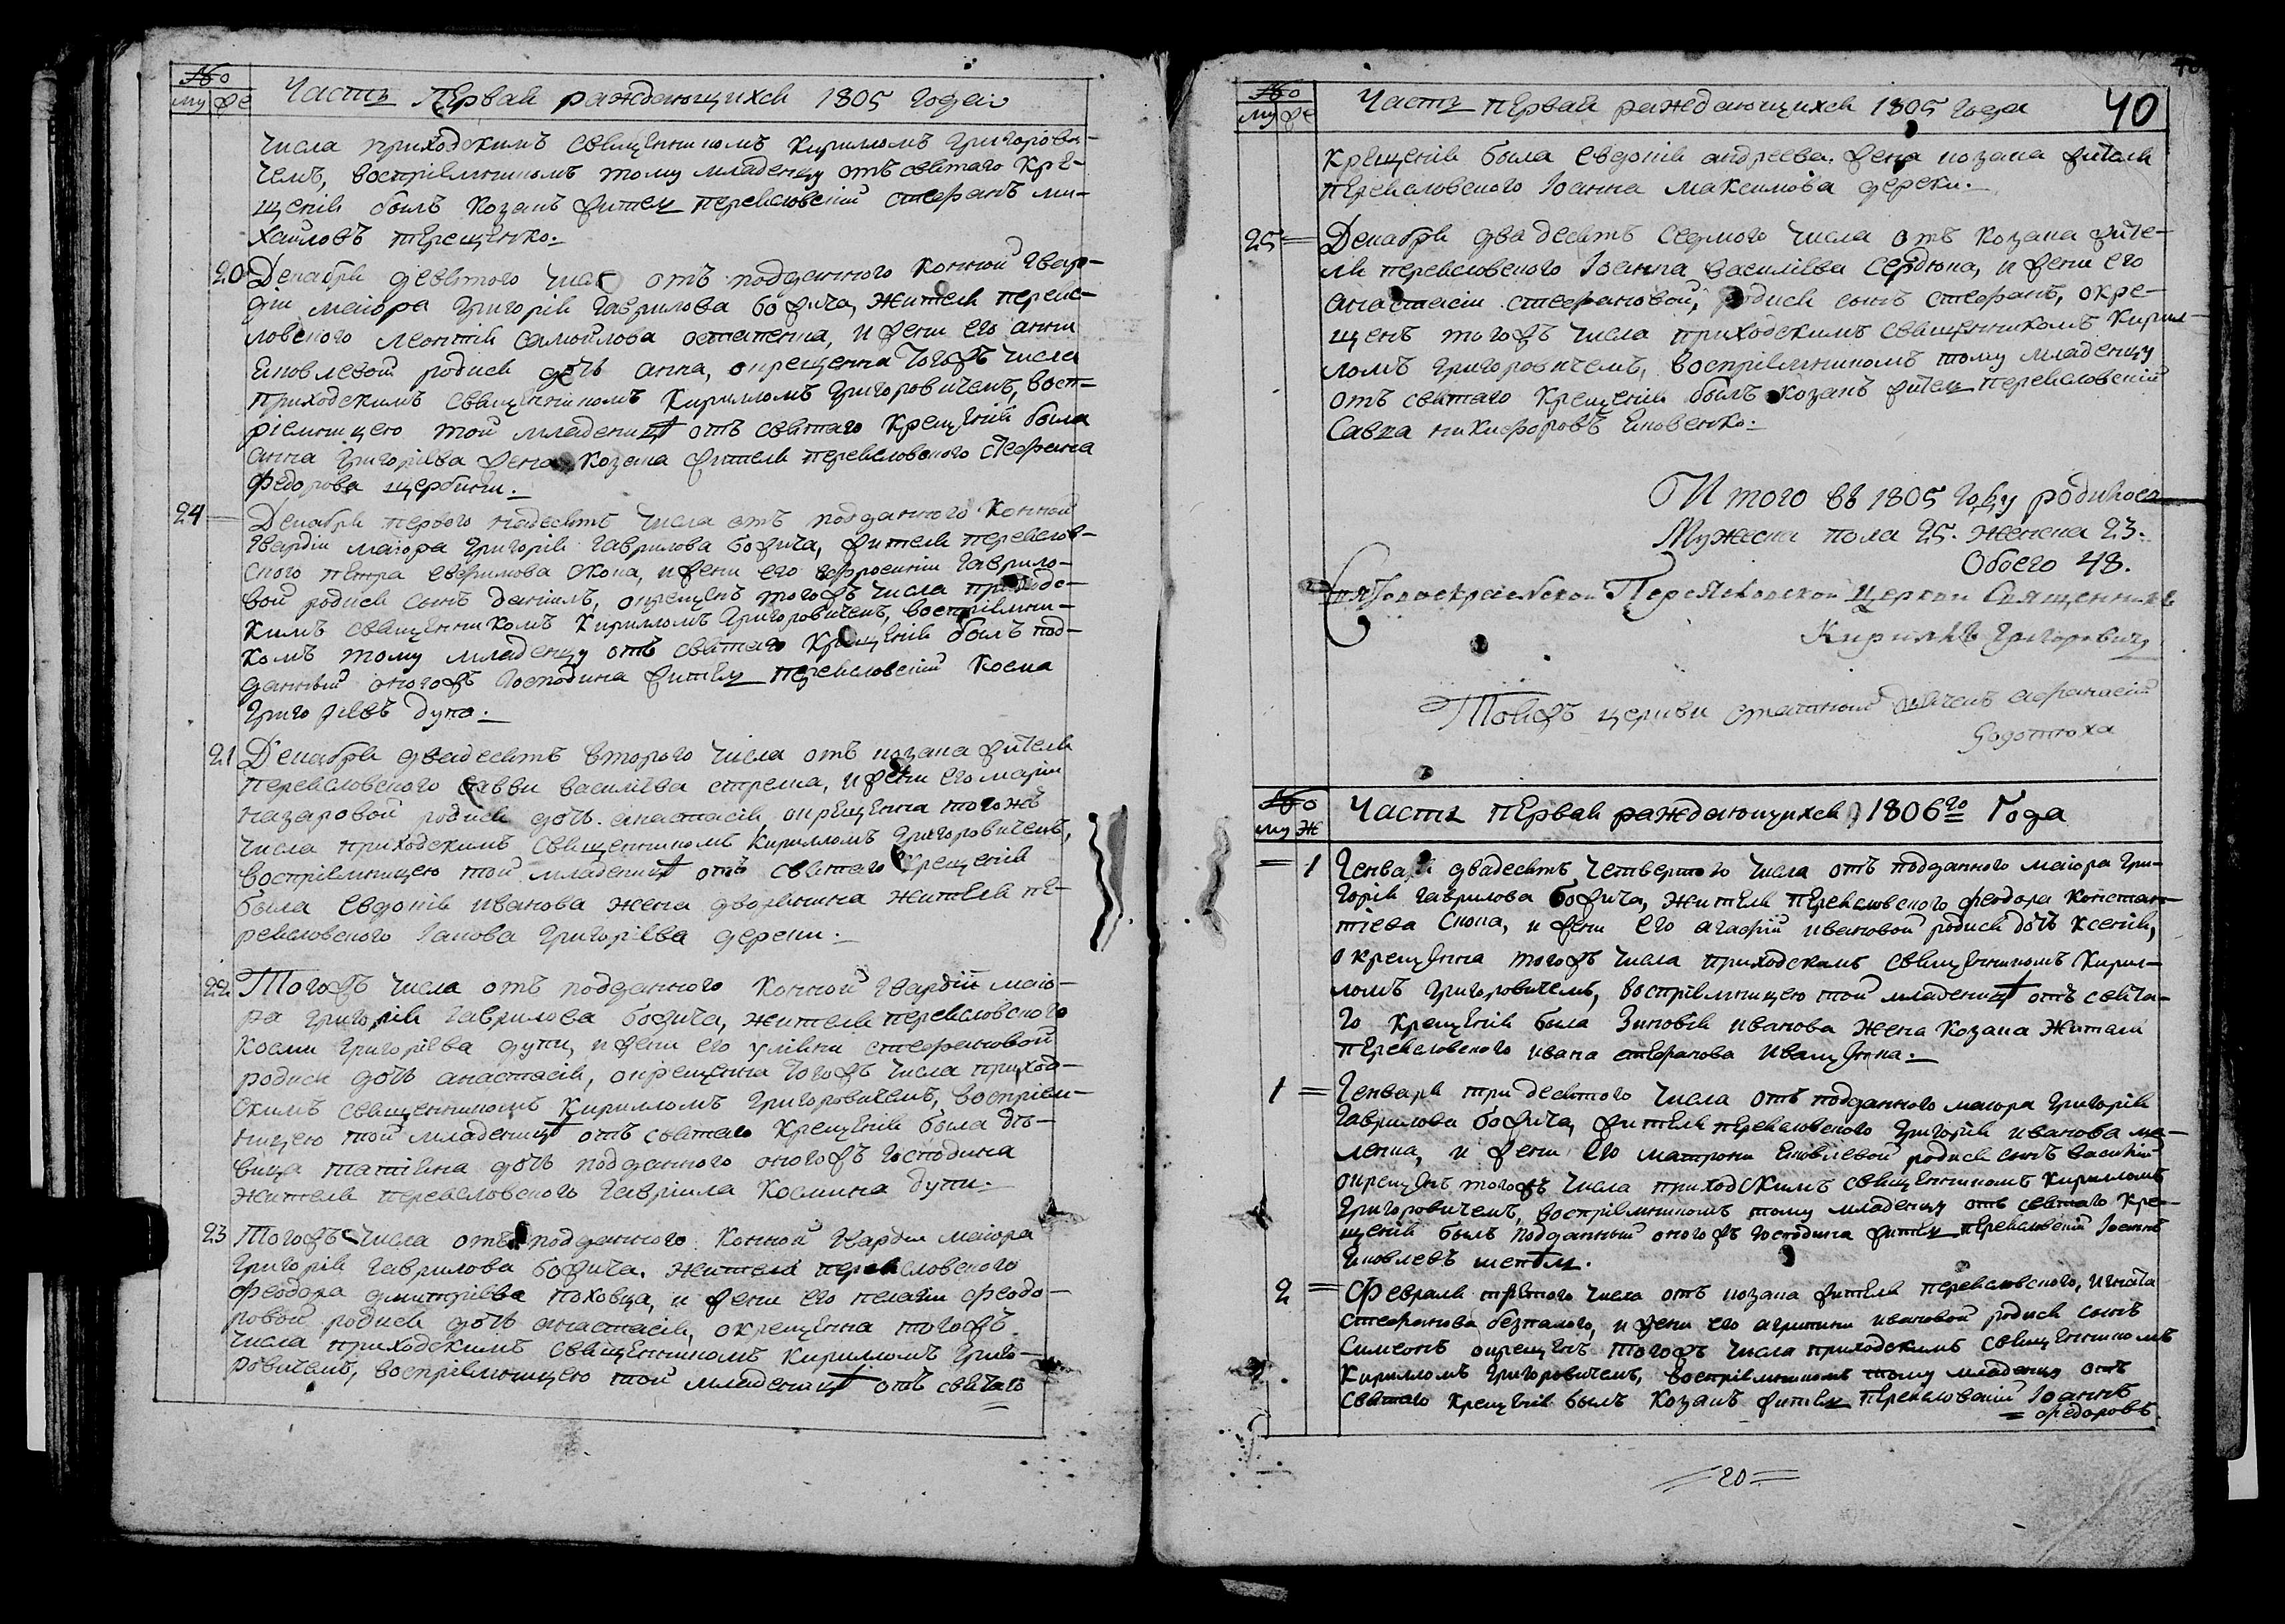 №
му фе Часть Первая раждающихся 1805 года
числа приходскимъ священникомъ Кирилломъ Григорови-
чемъ, воспріемникомъ тому младенцу отъ святаго кре-
щенія былъ козакъ житель переясловскій стефанъ ми-
хайловъ терещенко.
20 Декабря девятого числ отъ подданного конной гвар-
діи маіора григорія гаврилова божича, жителя переяс-
ловского леонтія самойлова остапенка, и жени его анни
яковлевой родися дочь анна, окрещенна тогожъ числа
приходскимъ священникомъ Кирилломъ Григоровичемъ, восп-
ріемницею той младеницѣ отъ святаго крещенія была
анна григоріева жена козака жителя переясловского стефана
федорова щербини.
24 = Декабря первого надесять числа отъ подданного конной
гвардіи маіора григорія гаврилова божича, жителя переяслов-
ского петра евфимова скопа, и жени его евфросиніи гаврило-
вой родися сынъ даніилъ, окрещенъ тогожъ числа приходс-
кимъ священникомъ Кирилломъ Григоровичемъ, воспріемни-
комъ тому младенцу отъ святаго крещенія былъ под-
данный оногожъ господина житель переясловскій косма
григоріевъ дупа.
21 Декабря двадесять второго числа отъ козака жителя
переясловского саввы василіева стрепа, и жени его маріи
назаровой родися дочь анастасія окрещенна тогожъ
числа приходскимъ священникомъ Кирилломъ Григоровичемъ,
воспріемницею той младеницѣ отъ святаго крещенія
была евдокія иванова жена дворянина жителя пе-
реясловского Іакова Григоріева дереки.
22 Тогожъ числа отъ подданного конной гвардіи маіо-
ра григорія гаврилова божича, жителя переясловского
косми григоріева дупи, и жени его уліяни стефановой
родися дочь анастасія, окрещенна тогожъ числа приход-
скимъ священникомъ Кирилломъ Григоровичемъ, воспріем-
ницею той младеницѣ отъ святаго крещенія была дѣ-
вица татіяна дочь подданного оногожъ господина
жителя переясловского гавріила космина дупи.
23 Тогожъ числа отъ подданного конной гвардіи маіора
григорія гаврилова божича, жителя переясловского
феодора димитріева поковца, и жени его пелагіи феодо-
ровой родися дочь анастасія, окрещенна тогожъ
числа приходскимъ священникомъ Кирилломъ Григо-
ровичемъ, воспріемницею той младеницѣ отъ святаго
№
му фе Часть первая раждающихся 1805 года 40
крещенія была евдокія андреева, жена козака жителя
переясловского Іоанна максимова дереки.
25 = Декабря двадесять седмого числа отъ козака жите-
ля переясловского Іоанна василіева сердюка, и жени его
анастасіи стефановой, родися сынъ стефанъ, окре-
щенъ тогожъ числа приходскимъ священникомъ Кирил-
ломъ григоровичемъ, воспріемникомъ тому младенцу
отъ святаго крещенія былъ козакъ житель переясловскій
Савва никифоровъ яковенко.
Итого въ 1805 году родилося
Мужеска пола 25. женска 23.
Обоего 48.
Переясловской церкви Священникъ
Кириллъ Григоровичъ
Тояжъ церкви дьячекъ афанасій
№
му ж Часть первая раждающихся 1806го Года
= 1 Генваря двадесять четвертого числа отъ подданного маіора гри-
горія гаврилова божича, жителя переясловского феодора констан-
тіева скопа, и жени его агафіи ивановой родися дочь ксенія,
окрещенна тогожъ числа приходскимъ священникомъ Кирил-
ломъ григоровичемъ, воспріемницею той младеницѣ отъ свята-
го крещенія была Зиновія иванова жена козака жителя
переясловского ивана стефанова иващенка.
1 = Генваря тридесятого числа отъ подданного маіора григорія
гаврилова божича, жителя переясловского григорія иванова ме-
ленка, и жени его матрони яковлевой родися сынъ василій
окрещенъ тогожъ числа приходскимъ священникомъ Кирилломъ
Григоровичемъ, воспріемникомъ тому младенцу отъ святаго кре-
щенія былъ подданный оногожъ господина житель переясловскій Іоаннъ
яковлевъ шептм.
2 = Февраля третого числа отъ козака жителя переясловского, игната
стефанова безпалого, и жени его агрипини ивановой родися сынъ
симеонъ окрещенъ тогожъ числа приходскимъ священникомъ
Кирилломъ григоровичемъ, воспріемникомъ тому младенцу отъ
святаго крещенія былъ козакъ житель переясловскій Іоаннъ
= федоровъ
= 20 =